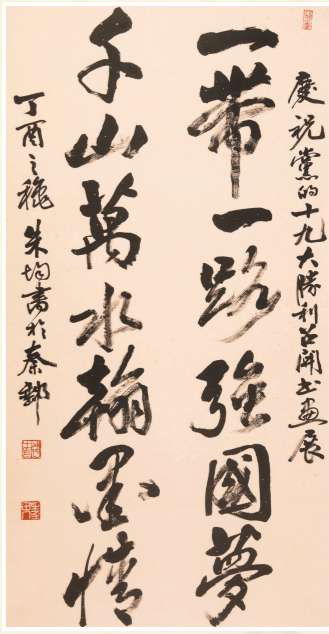 慶祝黨的十九大勝利召開書畫展
一帶一路强國夢
千山萬水翰墨情
丁酉之穐朱均書於秦郵